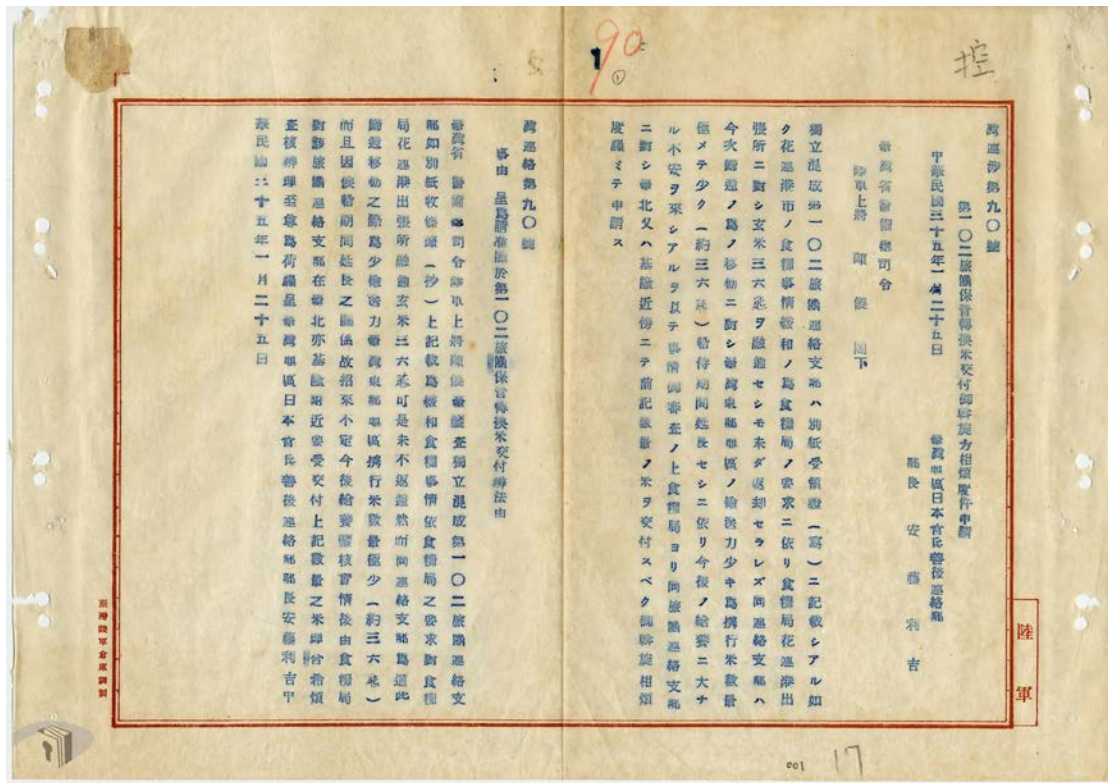 控
90
①
1
臺連涉第九〇號
第一〇二旅團保管轉換米交付御斡旋方相煩度件申請
中華民國三十五年一月二十五日
臺灣地區日本官兵善後連絡部
部長 安藤利吉
臺灣省警備總司令
陸軍上將 陳儀 閣下
獨立混成第一〇二旅團連絡支部ハ別紙受領證(寫)ニ記載シアル如
ク花連港市ノ食糧事情緩和ノ爲食糧局ノ要求ニ依リ食糧局花連港出
張所ニ對シ玄米三六瓲ヲ融通セシモ未ダ返却セラレズ同連絡支部ハ
今次歸還ノ爲ノ移動ニ對シ臺灣東部地區ノ輸送力少キ爲携行米數量
極メテ少ク(約三六瓲)船待期間延長セシニ依リ今後ノ給養ニ大ナ
ル不安ヲ來シアルヲ以テ事情御審査ノ上食糧局ヨリ同旅團連絡支部
ニ對シ臺北又ハ基隆近傍ニテ前記數量ノ米ヲ交付スベク御斡旋相煩
度謹ミテ申請ス
臺連絡第九〇號
事由 呈爲請准關於第一〇二旅團保管轉換米交付辦法由
臺灣省警備總司令陸軍上將陳儀鈞鑒查獨立混成第一〇二旅團連絡支
部如別紙收條證(抄)上記載爲緩和食糧事情依食糧局之要求對食糧
局花連港出張所融通玄米三六瓲可是未不返還然而同連絡支部爲這此
歸還移動之際爲少輸送力臺灣東部地區携行米數量極少(約三六瓲)
而且因候船期間延長之關係故招來不定今後給養懇核實情後由食糧局
對該旅團連絡支部在臺北亦基隆附近要受交付上記數量之米即台祈煩
查核辦理至尊爲荷謹呈臺灣地區日本官兵善後連絡部部長安藤利吉中
華民國三十五年一月二十五日
陸軍
臺灣陸軍倉庫調製
001
17